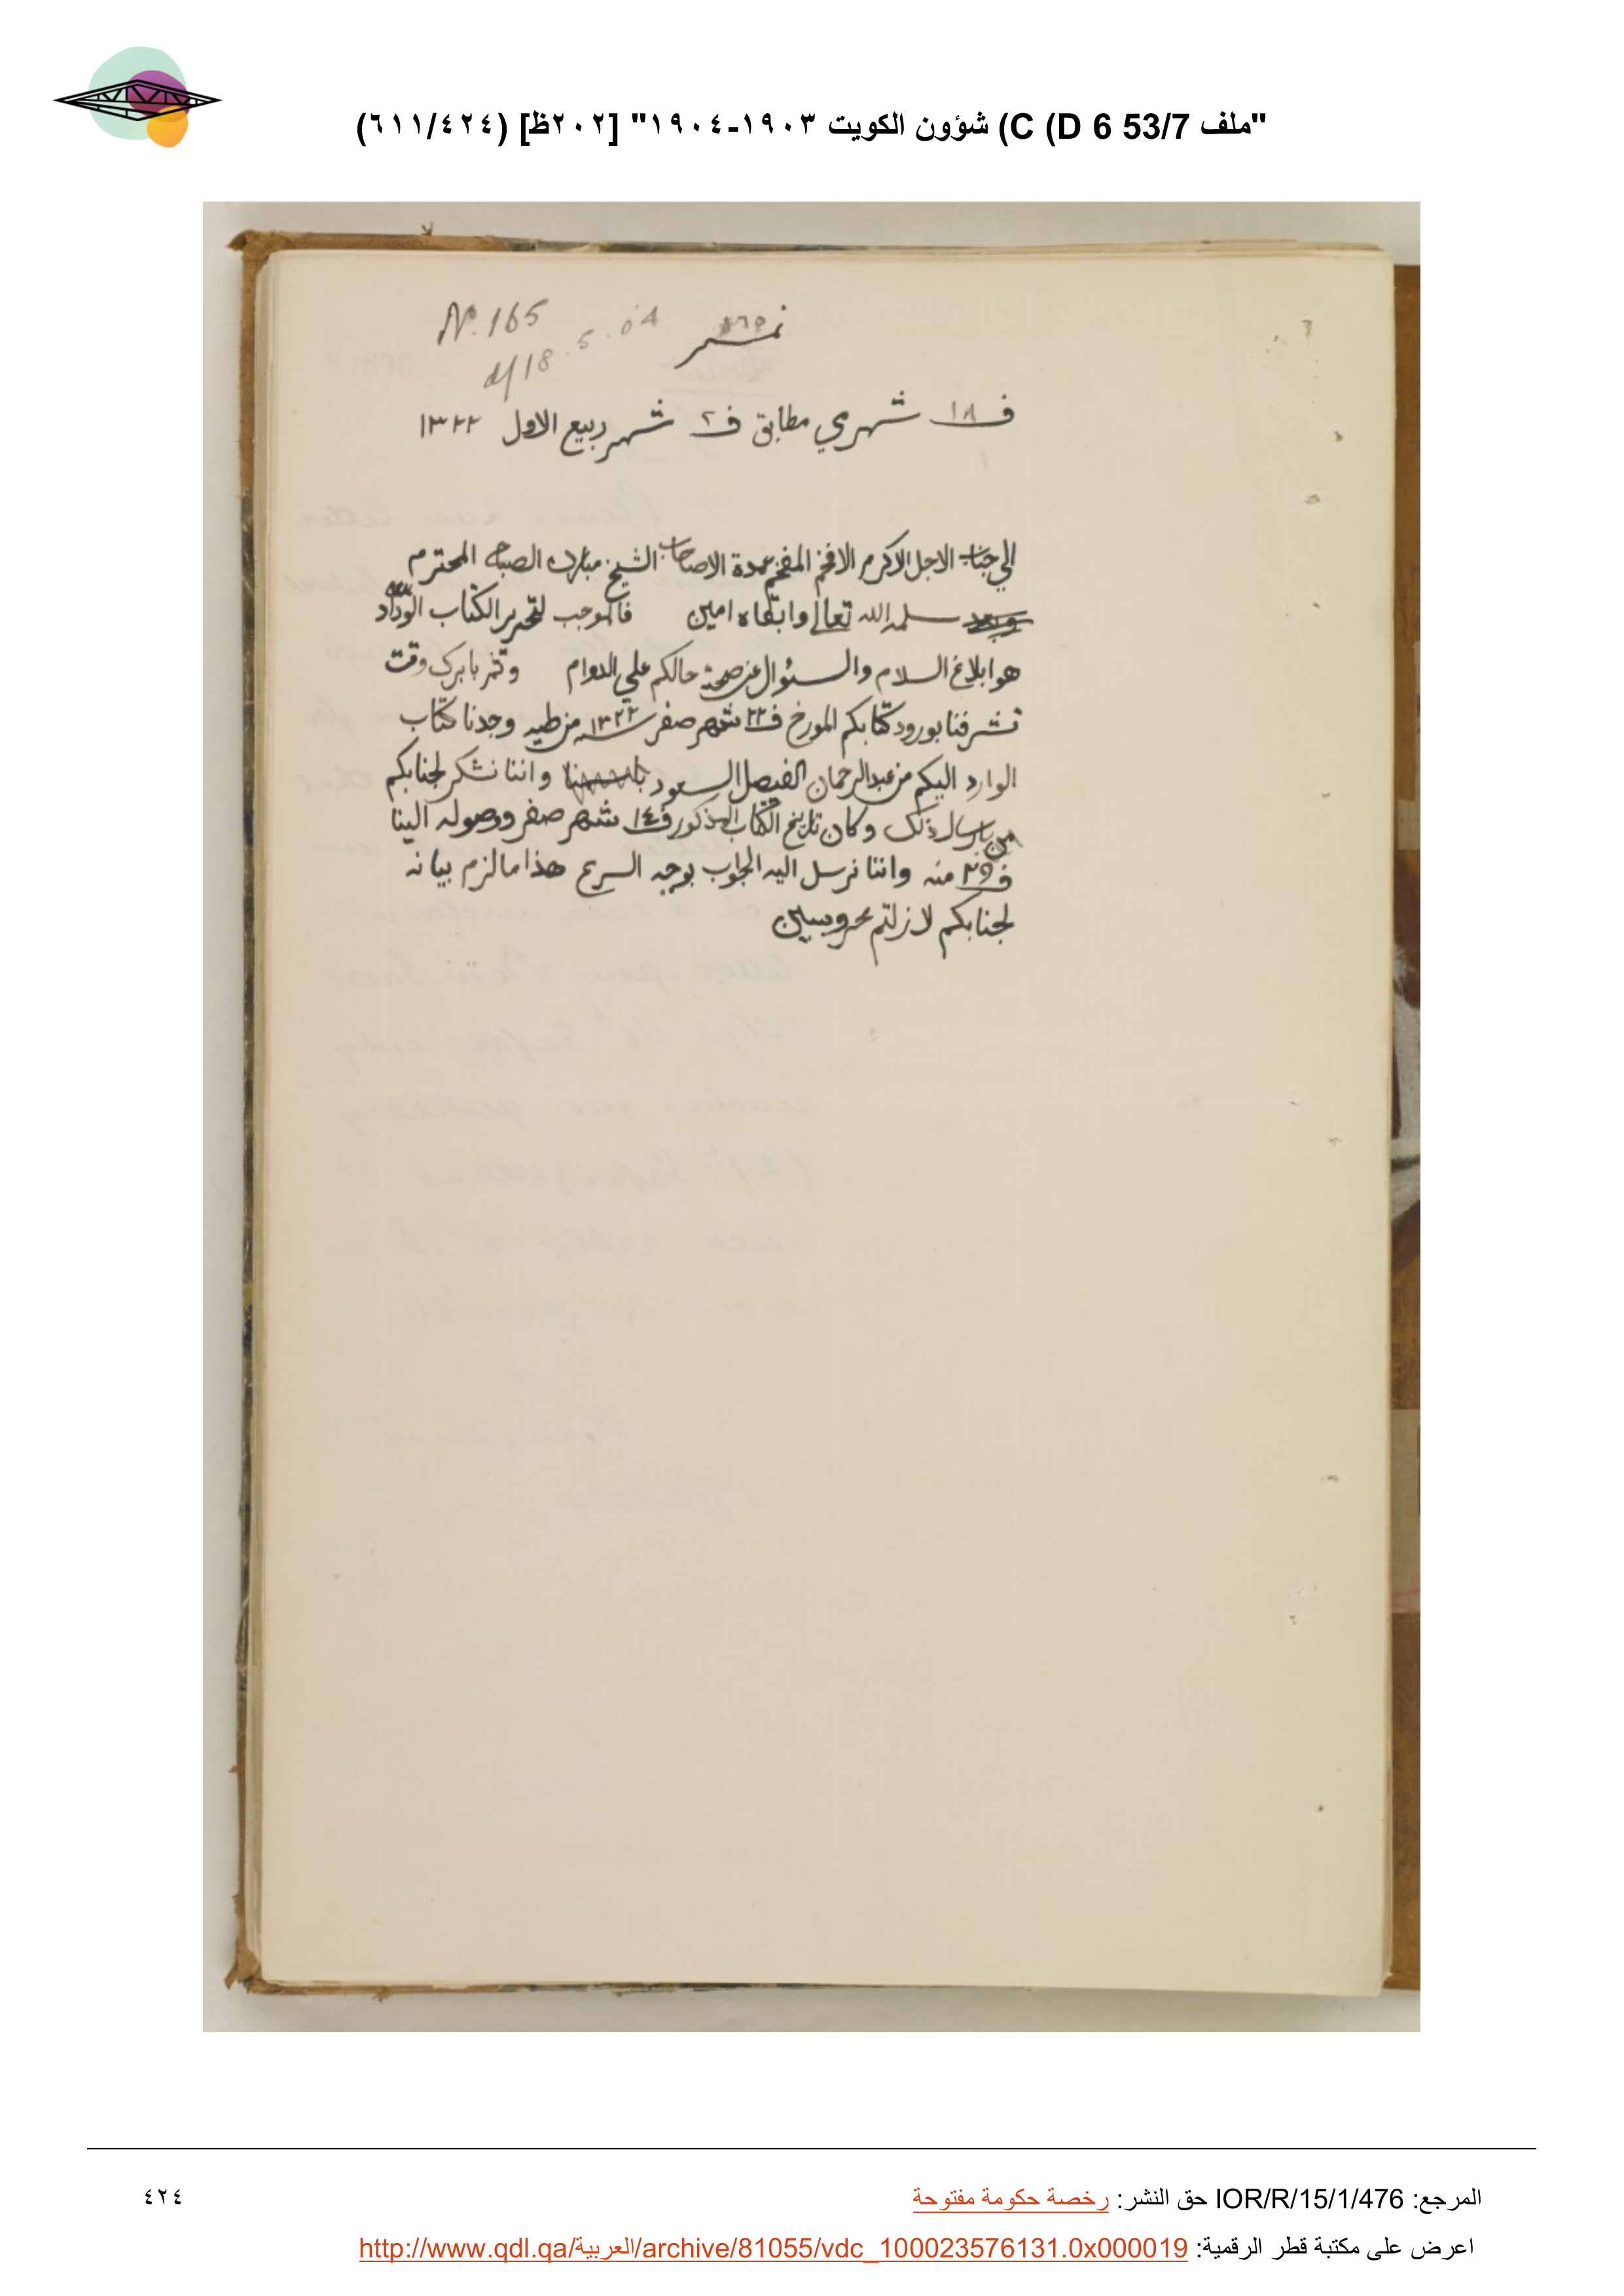 "ملف 53/7 C (D 6) شؤون الكويت ١٩٠٣-١٩٠٤" [٢٠٢ظ] (٦١١/٤٢٤)
No. 165
d/18.5.04
نمبر ١٦٥
في ١٨ شهري مطابق في ٢ شهر ربيع الاول ١٣٢٢
الي جناب الاجل الاكرم الافخم المفخم عمدة الاصحاب الشيخ مبارك الصباح المحترم
سلمه الله تعالي وابقاه امين فالموجب لتحرير الكتاب الوداد
هو ابلاغ السلام والسئوال عن صحة حالكم علي الدوام وثم بابرك وقت
تشرفنا بورود كتابكم المورخ في ٢٢ شهر صفر سنه ١٣٢٢ من طيه وجدنا كتاب
الوارد اليكم من عبدالرحمان الفيصل السعود واننا نشكر لجنابكم
من بارسال ذلك وكان تاريخ الكتاب المذكور في ١٤ شهر صفر ووصوله الينا
في ٢٩ منه واننا نرسل اليه الجواب بوجه السريع هذا ما لزم بيانه
لجنابكم لازلتم محروسين
المرجع: IOR/R/15/1/476 حق النشر: رخصة حكومة مفتوحة
٤٢٤
اعرض على مكتبة قطر الرقمية: http://www.qdl.qa/العربية/archive/81055/vdc_100023576131.0x000019